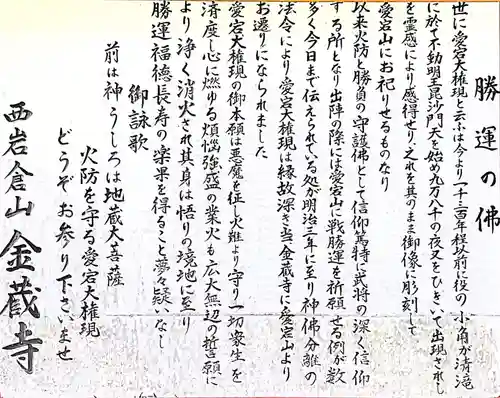 勝運の佛
世に愛宕大権現と云ふは今より一千三百年程以前に役の小角が清滝
に於て不動明王毘沙門天を始め九万八千の夜叉をひきいて出現され
を霊感により感得せり之れを其のまま御像に彫刻して
愛宕山にお祀りせるものなり
以来火防と勝負の守護佛として信仰篤特に武将の深く信仰
する所となり出陣の際には愛宕山に戦勝運を祈願せる例が数
多く今日まで伝えられている処が明治三年に至り神佛分離の
法令により愛宕大権現は縁故深き当金蔵寺に愛宕山より
お遷りになられました
愛宕大権現の御本願は悪魔を征し火難より守り一切衆生を
済度し心に燃ゆる煩悩強盛の業火も広大無辺の誓願に
より浄く消火され其身は悟りの境地に至り
勝運福徳長寿の楽果を得ること夢々疑いなし
御詠歌
前は神うしろは地蔵大菩薩
火防を守る愛宕大権現
どうぞお参り下さいませ
西岩倉山金蔵寺